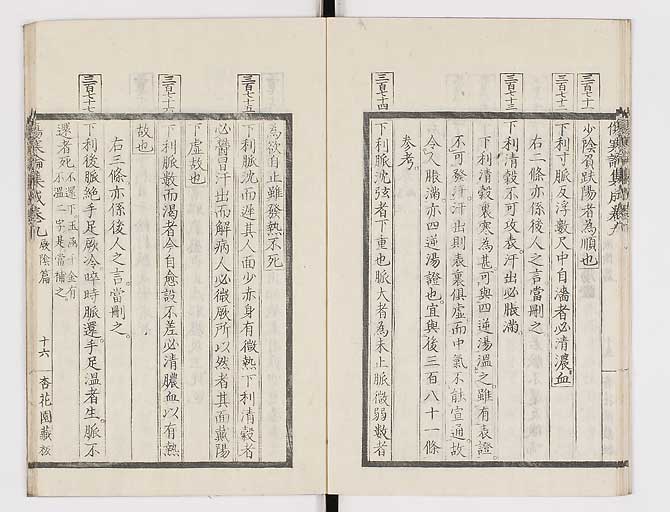 傷寒論集成卷九
三百七十一
少陰負趺陽者為順也
三百七十二
下利寸脈反浮數尺中自濇者必清膿血
右二條亦係後人之言當刪之
三百七十三
下利清穀不可攻表汗出必脹滿
下利清穀裏寒為甚可與四逆湯溫之雖有表證
不可發汗汗出則表裏俱虛而中氣不能宣通故
令人脹滿亦四逆湯證也宜與後三百八十一條
參考
三百七十四
下利脈沈弦者下重也脈大者為未止脈微弱數者
為欲自止雖發熱不死
三百七十五
下利脈沈而遲其人面少赤身有微熱下利清穀者
必鬱冒汗出而解病人必微厥所以然者其面戴陽
下虛故也
三百七十六
下利脈數而渴者今自愈設不差必清膿血以有熱
故也
右三條亦係後人之言當刪之
三百七十七
下利後脈絕手足厥冷晬時脈還手足溫者生脈不
還者死
不還下玉函千金有
不溫二字是當補之
傷寒論集成卷九 厥陰篇 十六 杏花園藏板